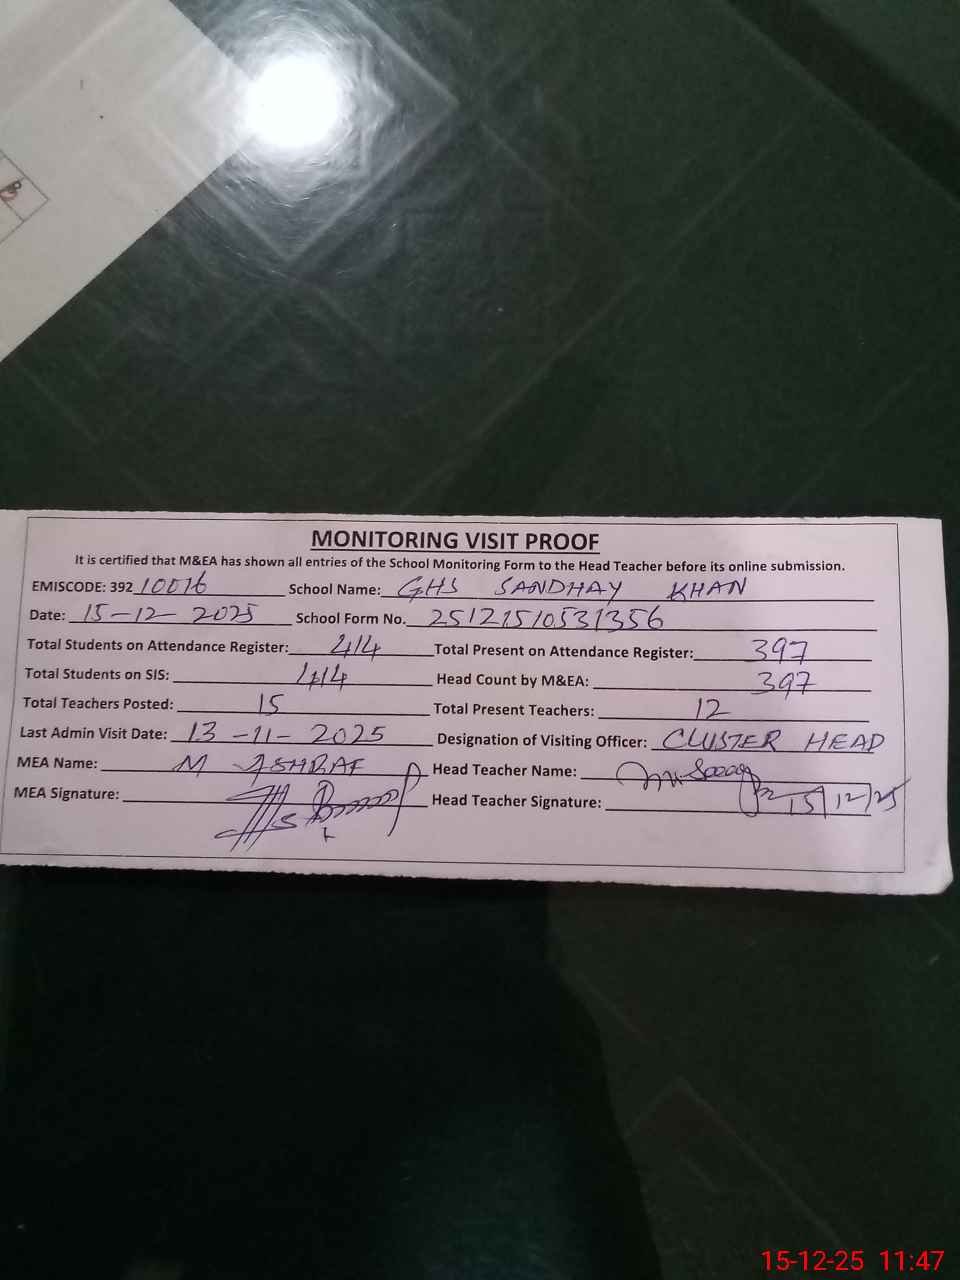 MONITORING VISIT PROOF
It is certified that M&EA has shown all entries of the School Monitoring Form to the Head Teacher before its online submission.
EMISCODE: 392 10016 School Name: GHS SANDHAY KHAN
Date: 15-12-2025 School Form No. 25121510531356
Total Students on Attendance Register: 414 Total Present on Attendance Register: 397
Total Students on SIS: 414 Head Count by M&EA: 397
Total Teachers Posted: 15 Total Present Teachers: 12
Last Admin Visit Date: 13-11-2025 Designation of Visiting Officer: CLUSTER HEAD
MEA Name: M ASHRAF Head Teacher Name:
MEA Signature: Head Teacher Signature: 15/12/25
15-12-25 11:47